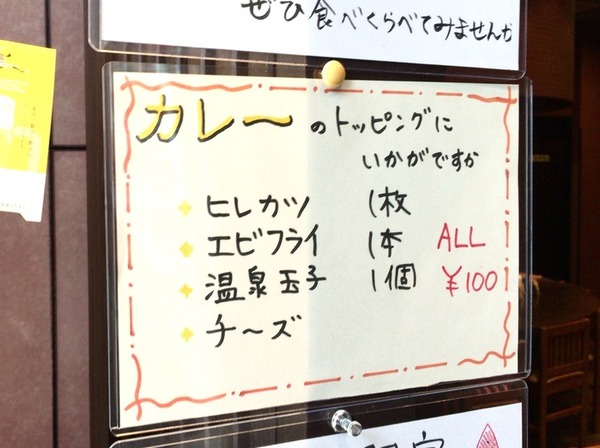 ぜひ食べくらべてみませんか
カレーのトッピングに
いかがですか
ヒレカツ 1枚
エビフライ 1本 ALL
温泉玉子 1個 ¥100
チーズ